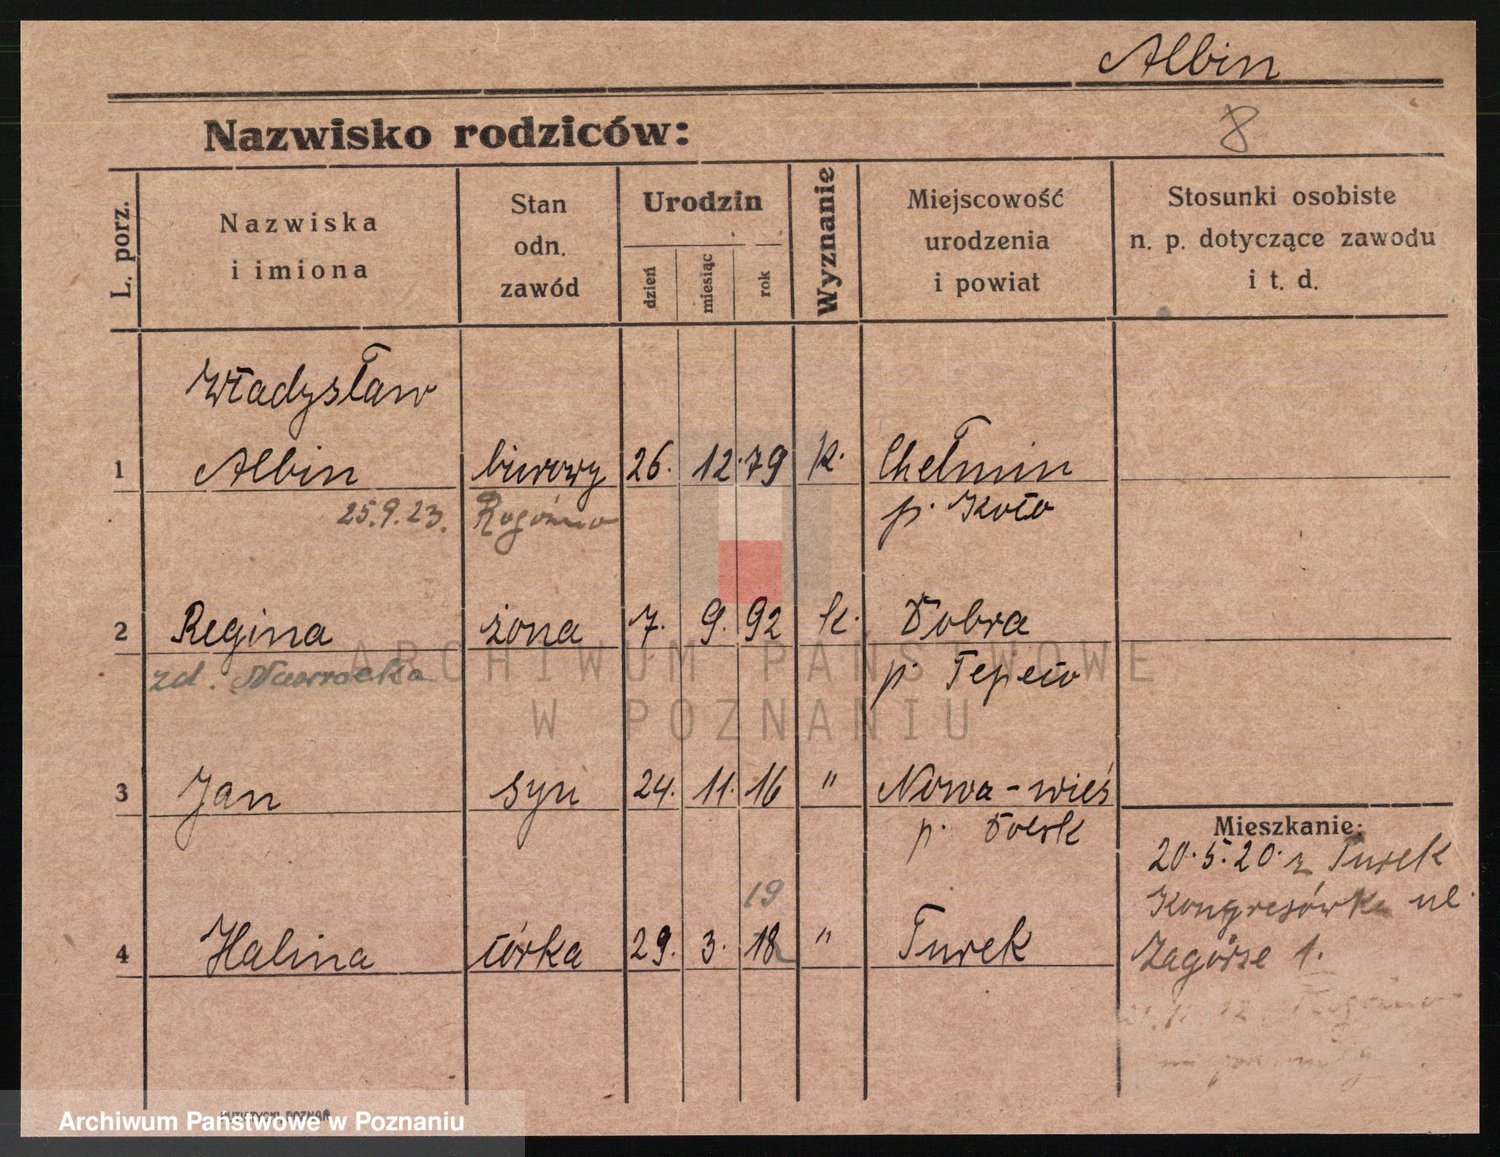 Albin
8
Nazwisko rodziców:
L. porz.
Nazwiska
i imiona
Stan
odn.
zawód
Urodzin
dzień
miesiąc
rok
Wyznanie
Miejscowość
urodzenia
i powiat
Stosunki osobiste
n. p. dotyczące zawodu
i t. d.
Władysław
1 Albin biurowy 26. 12. 79 k. Chełmin
25.9.23. Rogóźno p. Koło
2 Regina żona 7. 9. 92 k. Dobra
zd. Nawrocka p.
3 Jan syn 24. 11. 16 " Nowa-wieś
p.
Mieszkanie:
20.5.20. z Turek
Kongresówka ul.
Zagórze 1.
19
4 Halina córka 29. 3. 18 " Turek
ARCHIWUM PAŃSTWOWE
W POZNANIU
Archiwum Państwowe w Poznaniu